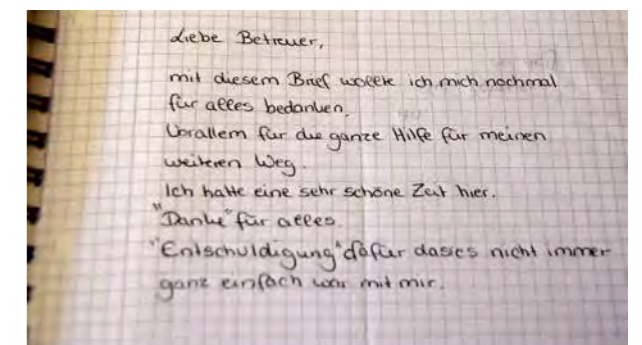 Liebe Betreuer,
mit diesem Brief wollte ich mich nochmal
für alles bedanken.
Vorallem für die ganze Hilfe für meinen
weiteren Weg.
Ich hatte eine sehr schöne Zeit hier.
"Danke" für alles.
"Entschuldigung" dafür dasies nicht immer
ganz einfach war mit mir.